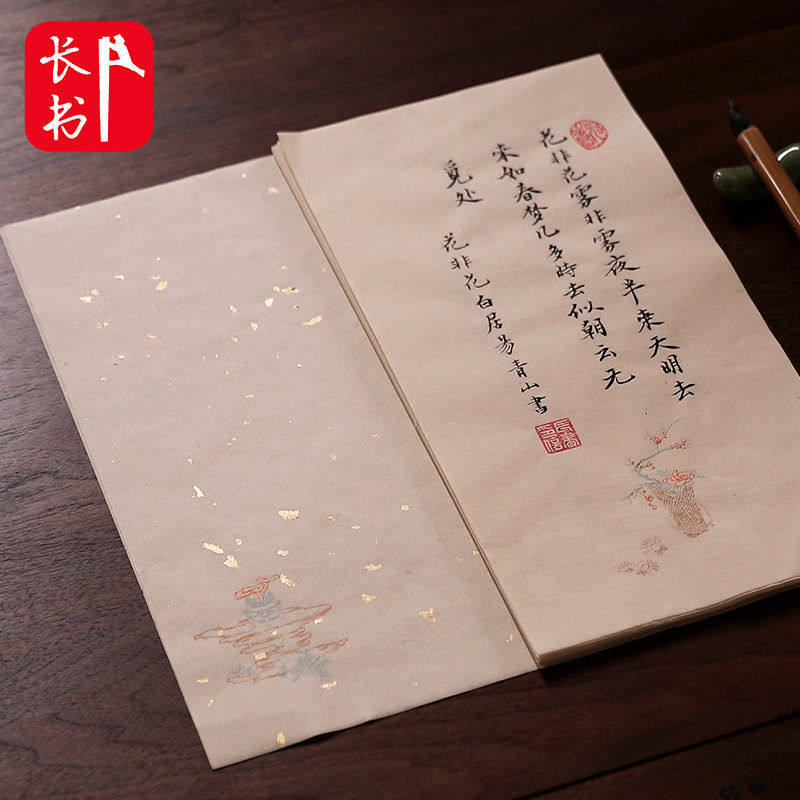 长书印
花非花雾非雾夜半来天明去
来如春梦几多時去似朝云无
觅处 花非花白居易青山書
長書印信